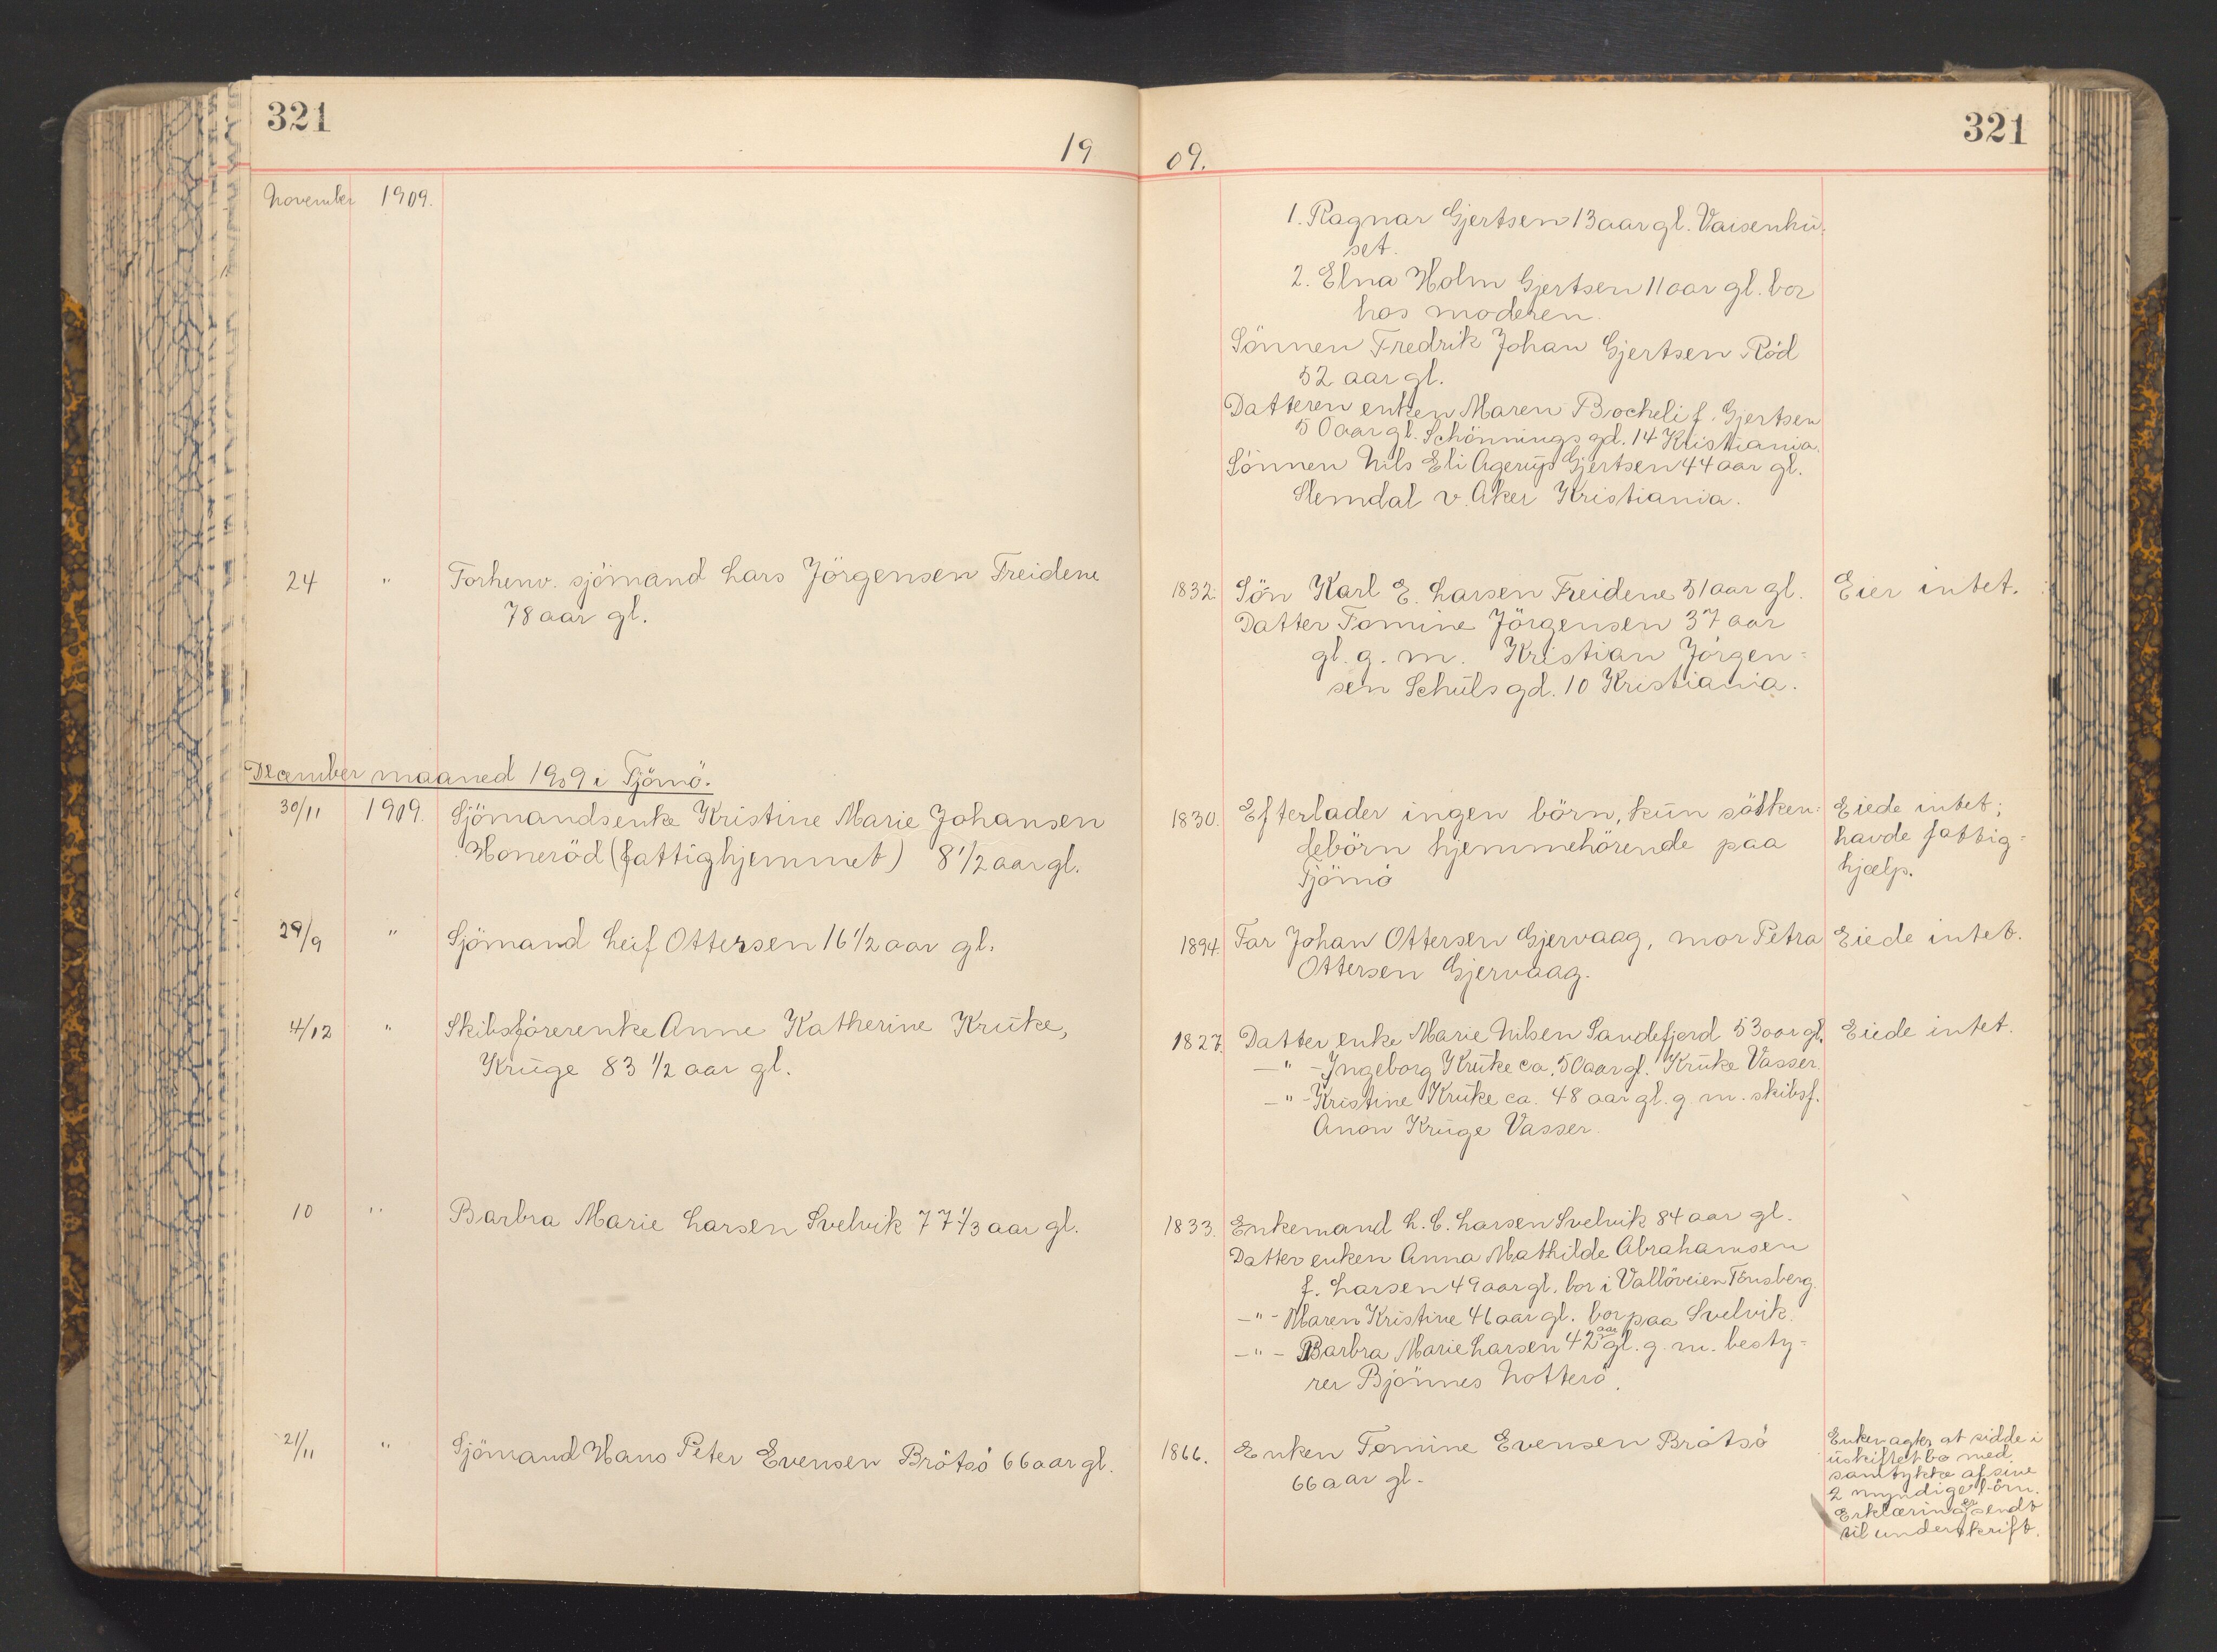 321
321
19 09.
November 1909.
1. Ragnar Gjertsen 13 aar gl. Vaisenhu-
set.
2. Elna Holm Gjertsen 11 aar gl. bor
hos moderen.
Sönnen Fredrik Johan Gjertsen Röd
52 aar gl.
Datteren enken Maren Bocheli f. Gjertsen
50 aar gl. Schönnings gd. 14 Kristiania.
Sönnen Nils Eli Agerup Gjertsen 44 aar gl.
Slemdal v. Aker Kristiania.
24 " Forhenv. sjömand Lars Jörgensen Treidene
78 aar gl.
1832. Sön Karl E. Larsen Treidene 51 aar gl.
Datter Tomine Jörgensen 37 aar
gl. g. m. Kristian Jörgen=
sen Schuls gd. 10 Kristiania.
Eier intet.
December maaned 1909 i Tjömö.
30/11 1909. Sjömandsenke Kristine Marie Johansen
Honeröd (fattighjemmet) 81/2 aar gl.
1830. Efterlader ingen börn, kun södsken=
debörn hjemmehörende paa
Tjömö
Eiede intet;
havde fattig=
hjælp.
29/9 " Sjömand Leif Ottersen 16 1/2 aar gl.
1894. Far Johan Ottersen Gjervaag, mor Petra
Ottersen Gjervaag.
Eiede intet.
4/12 " Skibsförerenke Anne Katherine Kruke,
Kruge 83 1/2 aar gl.
1827. Datter enke Marie Nilsen Sandefjord 53 aar gl.
—"— Ingeborg Kruke ca. 50 aar gl. Kruke Vasser.
—"— Kristine Kruke ca. 48 aar gl. g. m. skibsf.
Anon Kruge Vasser.
Eiede intet.
10 " Barbra Marie Larsen Svelvik 77 1/3 aar gl.
1833. Enkemand L. C. Larsen Svelvik 84 aar gl.
Datter enken Anna Mathilde Abrahamsen
f. Larsen 49 aar gl. bor i Vallöveien Tönsberg.
—"— Maren Kristine 46 aar gl. bor paa Svelvik.
—"— Barbra Marie Larsen 42 aar gl. g. m. besty=
rer Bjönnes Notterö.
21/11 " Sjömand Hans Peter Evensen Brötsö 66 aar gl.
1866. Enken Tomine Evensen Brötsö
66 aar gl.
Enken agter at sidde i
uskiftet bo med
samtykke af sine
2 myndige börn.
Erklæring er sendt
til underskrift.